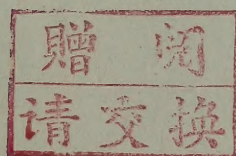 赠阅
请交换